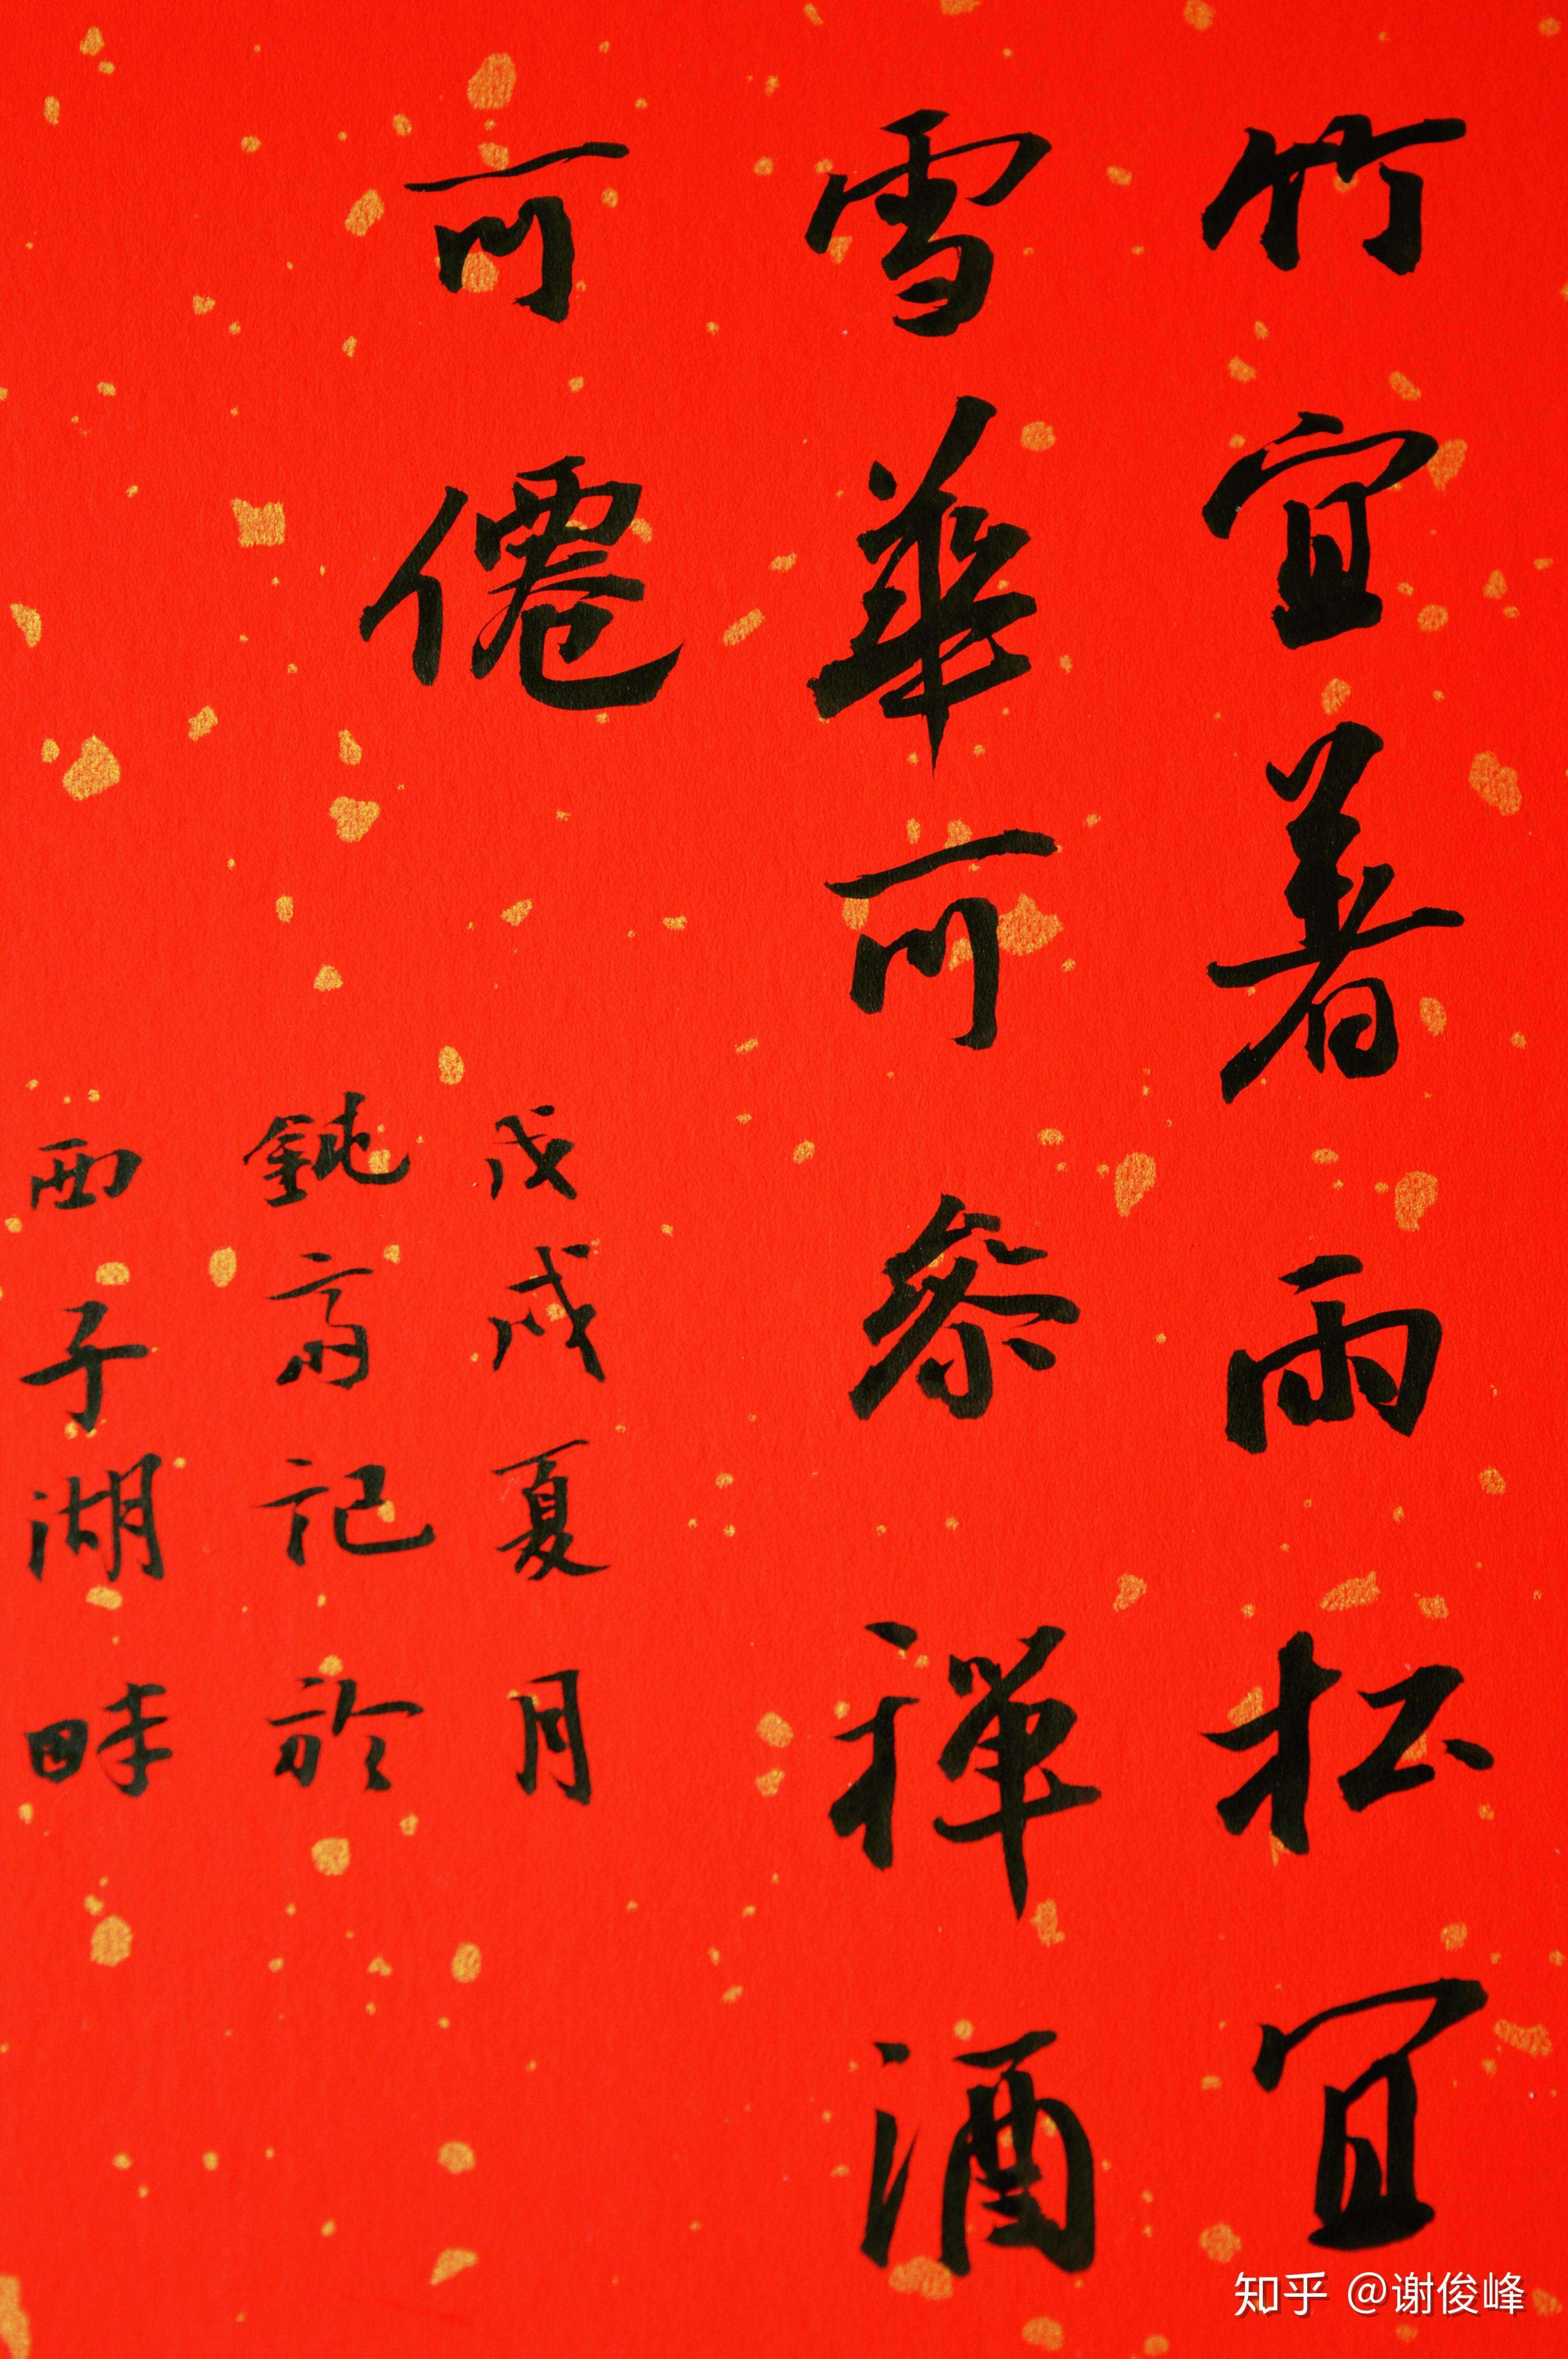 竹宜著雨松宜
雪華可參禪酒
可僊
戊戌夏月
鈍齋記於
西子湖畔
知乎 @谢俊峰